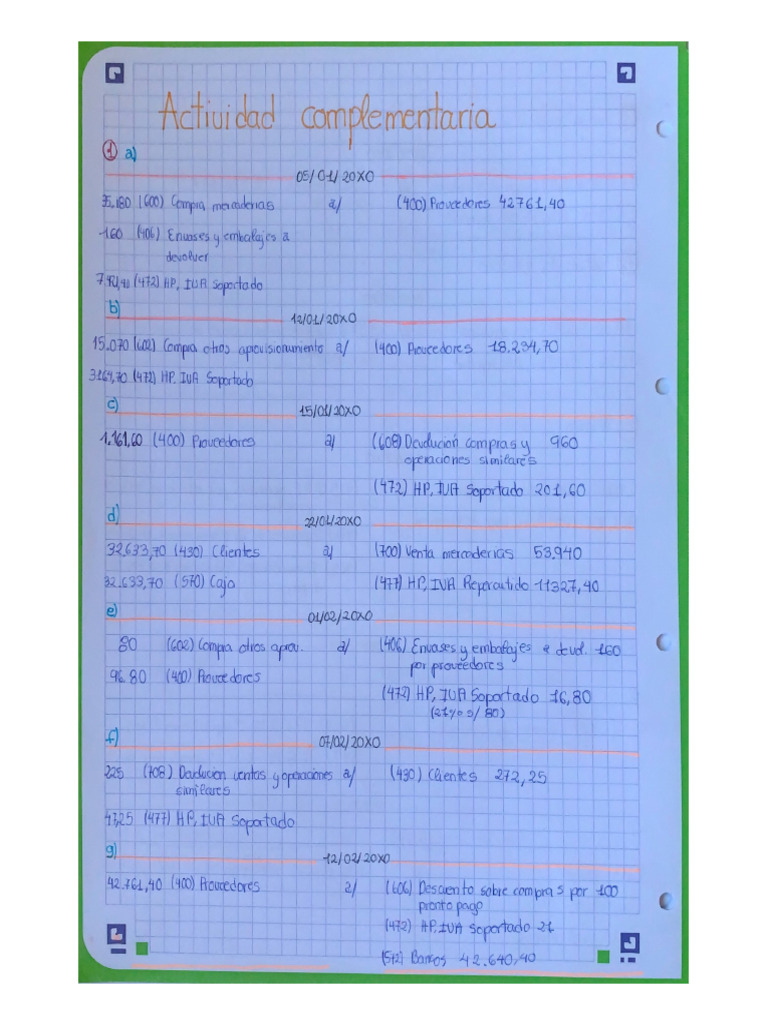 Actividad complementaria
① a)
05/01/20X0
35.180 (600) Compra mercaderias a/ (400) Proveedores 42761,40
160 (406) Envases y embalajes a
devolver
7.421,40 (472) HP, IVA Soportado
b)
12/01/20X0
15.070 (602) Compra otros aprovisionamiento a/ (400) Proveedores 18.234,70
3.164,70 (472) HP. IVA Soportado
c)
15/01/20X0
1.161,60 (400) Proveedores a/ (608) Devolución compras y 960
operaciones similares
(472) HP, IVA Soportado 201,60
d)
22/01/20X0
32.633,70 (430) Clientes a/ (700) Venta mercaderias 53.940
32.633,70 (570) Caja (477) HP, IVA Repercutido 11327,40
e)
01/02/20X0
80 (602) Compra otros aprov. a/ (406) Envases y embalajes a devol. 160
por proveedores
96.80 (400) Proveedores
(472) HP, IVA Soportado 16,80
(21% s/ 80)
f)
07/02/20X0
225 (708) Devolucion ventas y operaciones a/ (430) Clientes 272,25
similares
47,25 (477) HP, IVA Soportado
g)
12/02/20X0
42.761,40 (400) Proveedores a/ (606) Descuento sobre compras por 100
pronto pago
(472) HP, IVA Soportado 21
(572) Bancos 42.640,40